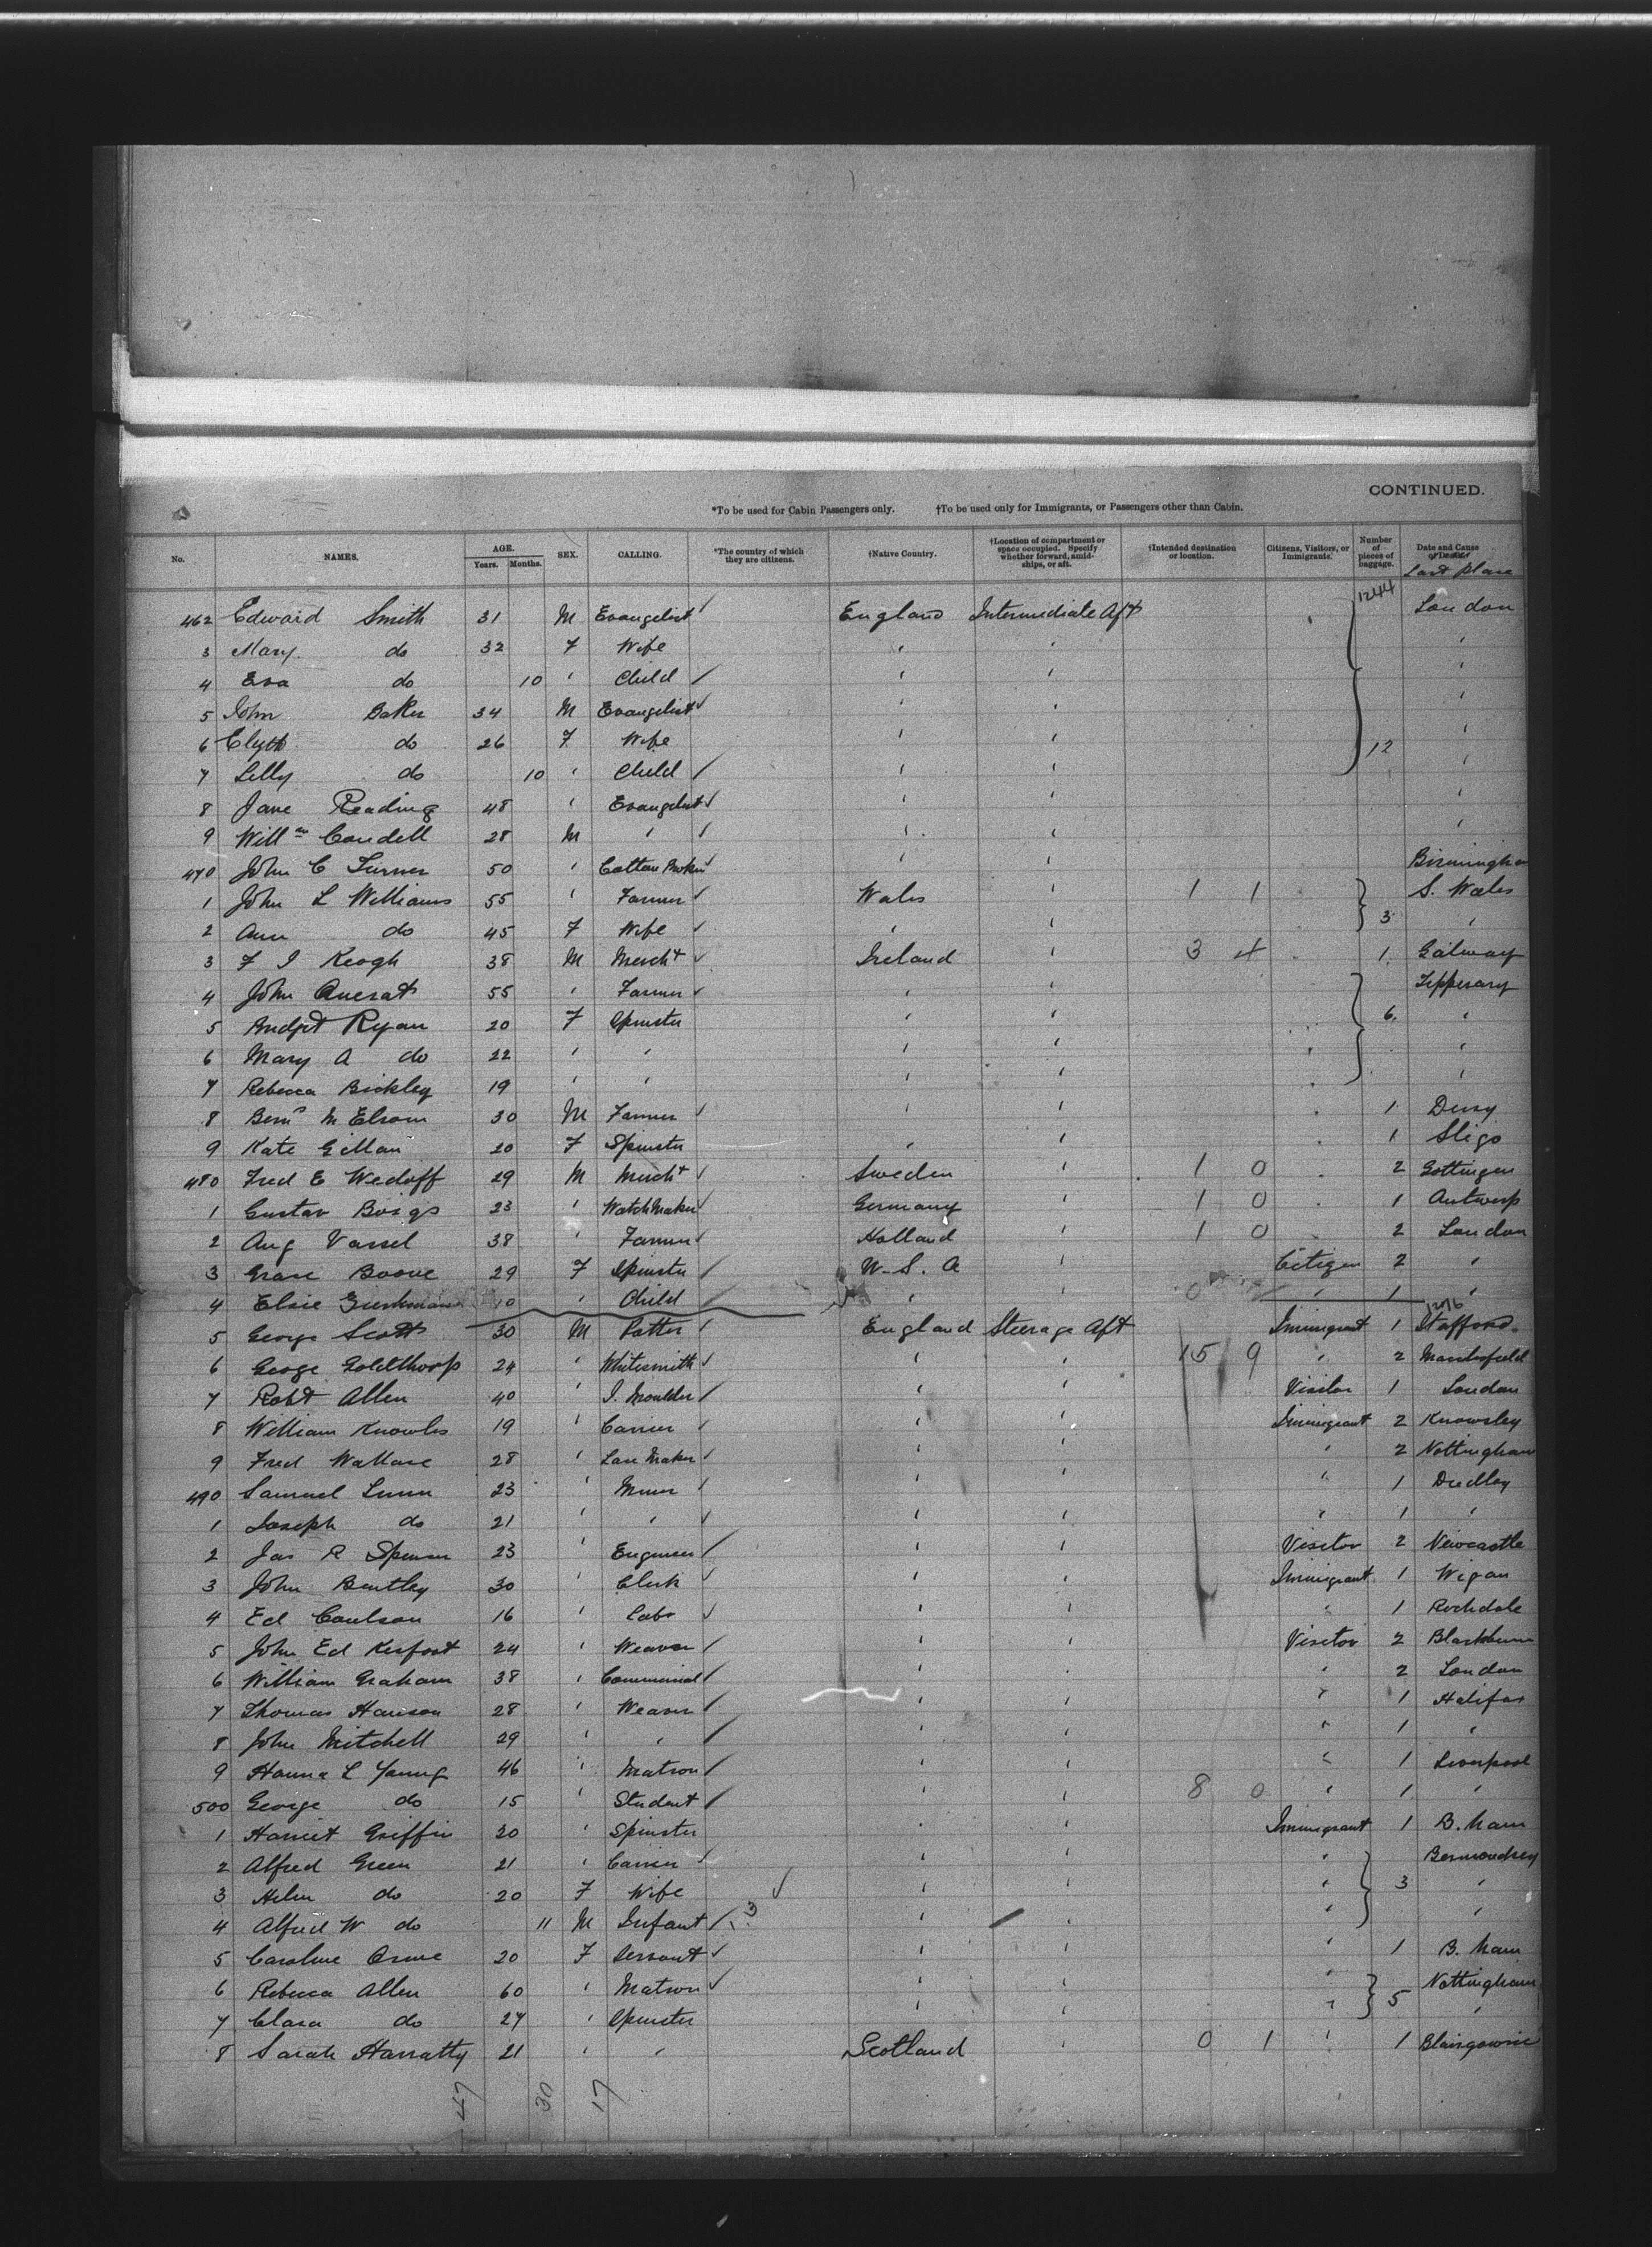 CONTINUED.
*To be used for Cabin Passengers only. †To be used only for Immigrants, or Passengers other than Cabin.
No. NAMES. AGE. Years. Months. SEX. CALLING. *The country of which they are citizens. †Native Country. †Location of compartment or space occupied. Specify whether forward, amidships, or aft. †Intended destination or location. Citizens, Visitors, or Immigrants. Number of pieces of baggage. Date and Cause of Death Last place
1244
462 Edward Smith 31 M Evangelist England Intermediate Aft London
3 Mary do 32 F Wife ' ' '
4 Eva do 10 ' Child ' ' '
5 John Baker 34 M Evangelist ' ' '
6 do 26 F Wife ' ' 12 '
7 Lilly do 10 ' Child ' ' '
8 Jane Reading 48 ' Evangelist ' ' '
9 Willm Condell 28 M ' ' ' '
470 John C Turner 50 ' Cotton ' ' Birmingham
1 John L Williams 55 ' Farmer Wales ' 1 1 S. Wales
2 Ann do 45 F Wife ' ' 3 '
3 F J Keogh 38 M Mercht Ireland ' 3 4 1 Galway
4 John 55 ' Farmer ' ' Tipperary
5 Bridgt Ryan 20 F Spinster ' ' 6 '
6 Mary A do 22 ' ' ' ' '
7 Rebecca Bickley 19 ' ' ' ' '
8 30 M Farmer ' ' 1 Derry
9 Kate Gillan 20 F Spinster ' ' 1 Sligo
480 Fred E Wedoff 29 M Mercht Sweden ' 1 0 2 Gottingen
1 Gustav 23 ' Watch Maker Germany ' 1 0 1 Antwerp
2 Aug Vassel 38 ' Farmer Holland ' 1 0 2 London
3 Grace Boove 29 F Spinster U.S.A ' Citizen 2 '
4 Elsie 10 ' Child ' ' 0 ' 1 '
1276
5 George Scott 30 M Potter England Steerage Aft Immigrant 1 Stafford
6 George Goldthorp 24 ' Whitesmith ' ' 15 9 ' 2
7 Robt Allen 40 ' I. Moulder ' ' Visitor 1 London
8 William Knowles 19 ' Carrier ' ' Immigrant 2 Knowsley
9 Fred Wallace 28 ' Lace Maker ' ' ' 2 Nottingham
490 Samuel Lunn 23 ' Miner ' ' ' 1 Dudley
1 Joseph do 21 ' ' ' ' ' 1 '
2 Jas R Spencer 23 ' Engineer ' ' Visitor 2 Newcastle
3 John Bentley 30 ' Clerk ' ' Immigrant 1 Wigan
4 Ed Coulson 16 ' Labr ' ' ' 1 Rochdale
5 John Ed 24 ' Weaver ' ' Visitor 2 Blackburn
6 William Graham 38 ' Commercial ' ' 2 London
7 Thomas Hanson 28 ' Weaver ' ' ' 1 Halifax
8 John Mitchell 29 ' ' ' ' ' 1 '
9 Hanna L Young 46 ' Matron ' ' ' 1 Liverpool
500 George do 15 ' Student ' ' 8 0 ' 1 '
1 Harriet Griffin 20 ' Spinster ' ' Immigrant 1 B.ham
2 Alfred Green 21 ' Carrier ' ' ' Bermondsey
3 Helen do 20 F Wife ' ' ' 3 '
4 Alfred W do 11 M Infant 3 ' ' ' '
5 Caroline Orme 20 F Servant ' ' ' 1 B.ham
6 Rebecca Allen 60 ' Matron ' ' ' Nottingham
7 Clara do 27 ' Spinster ' ' ' 5 '
8 Sarah Harratty 21 ' ' Scotland ' 0 1 ' 1 Blairgowrie
47 30 17